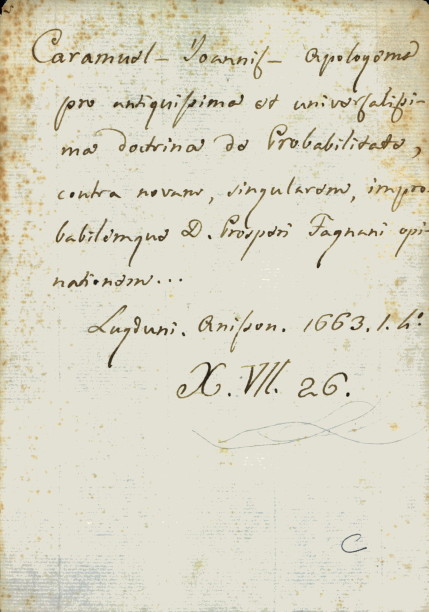 Caramuel - Joannis - Apologema
pro antiquissima et universalissi-
ma doctrina de Probabilitate,
contra novam, singularem, impro-
babilemque D. Prosperi Fagnani opi-
nationem...
Lugduni. Anisson. 1663. 1. 4º
X. VII. 26.
C